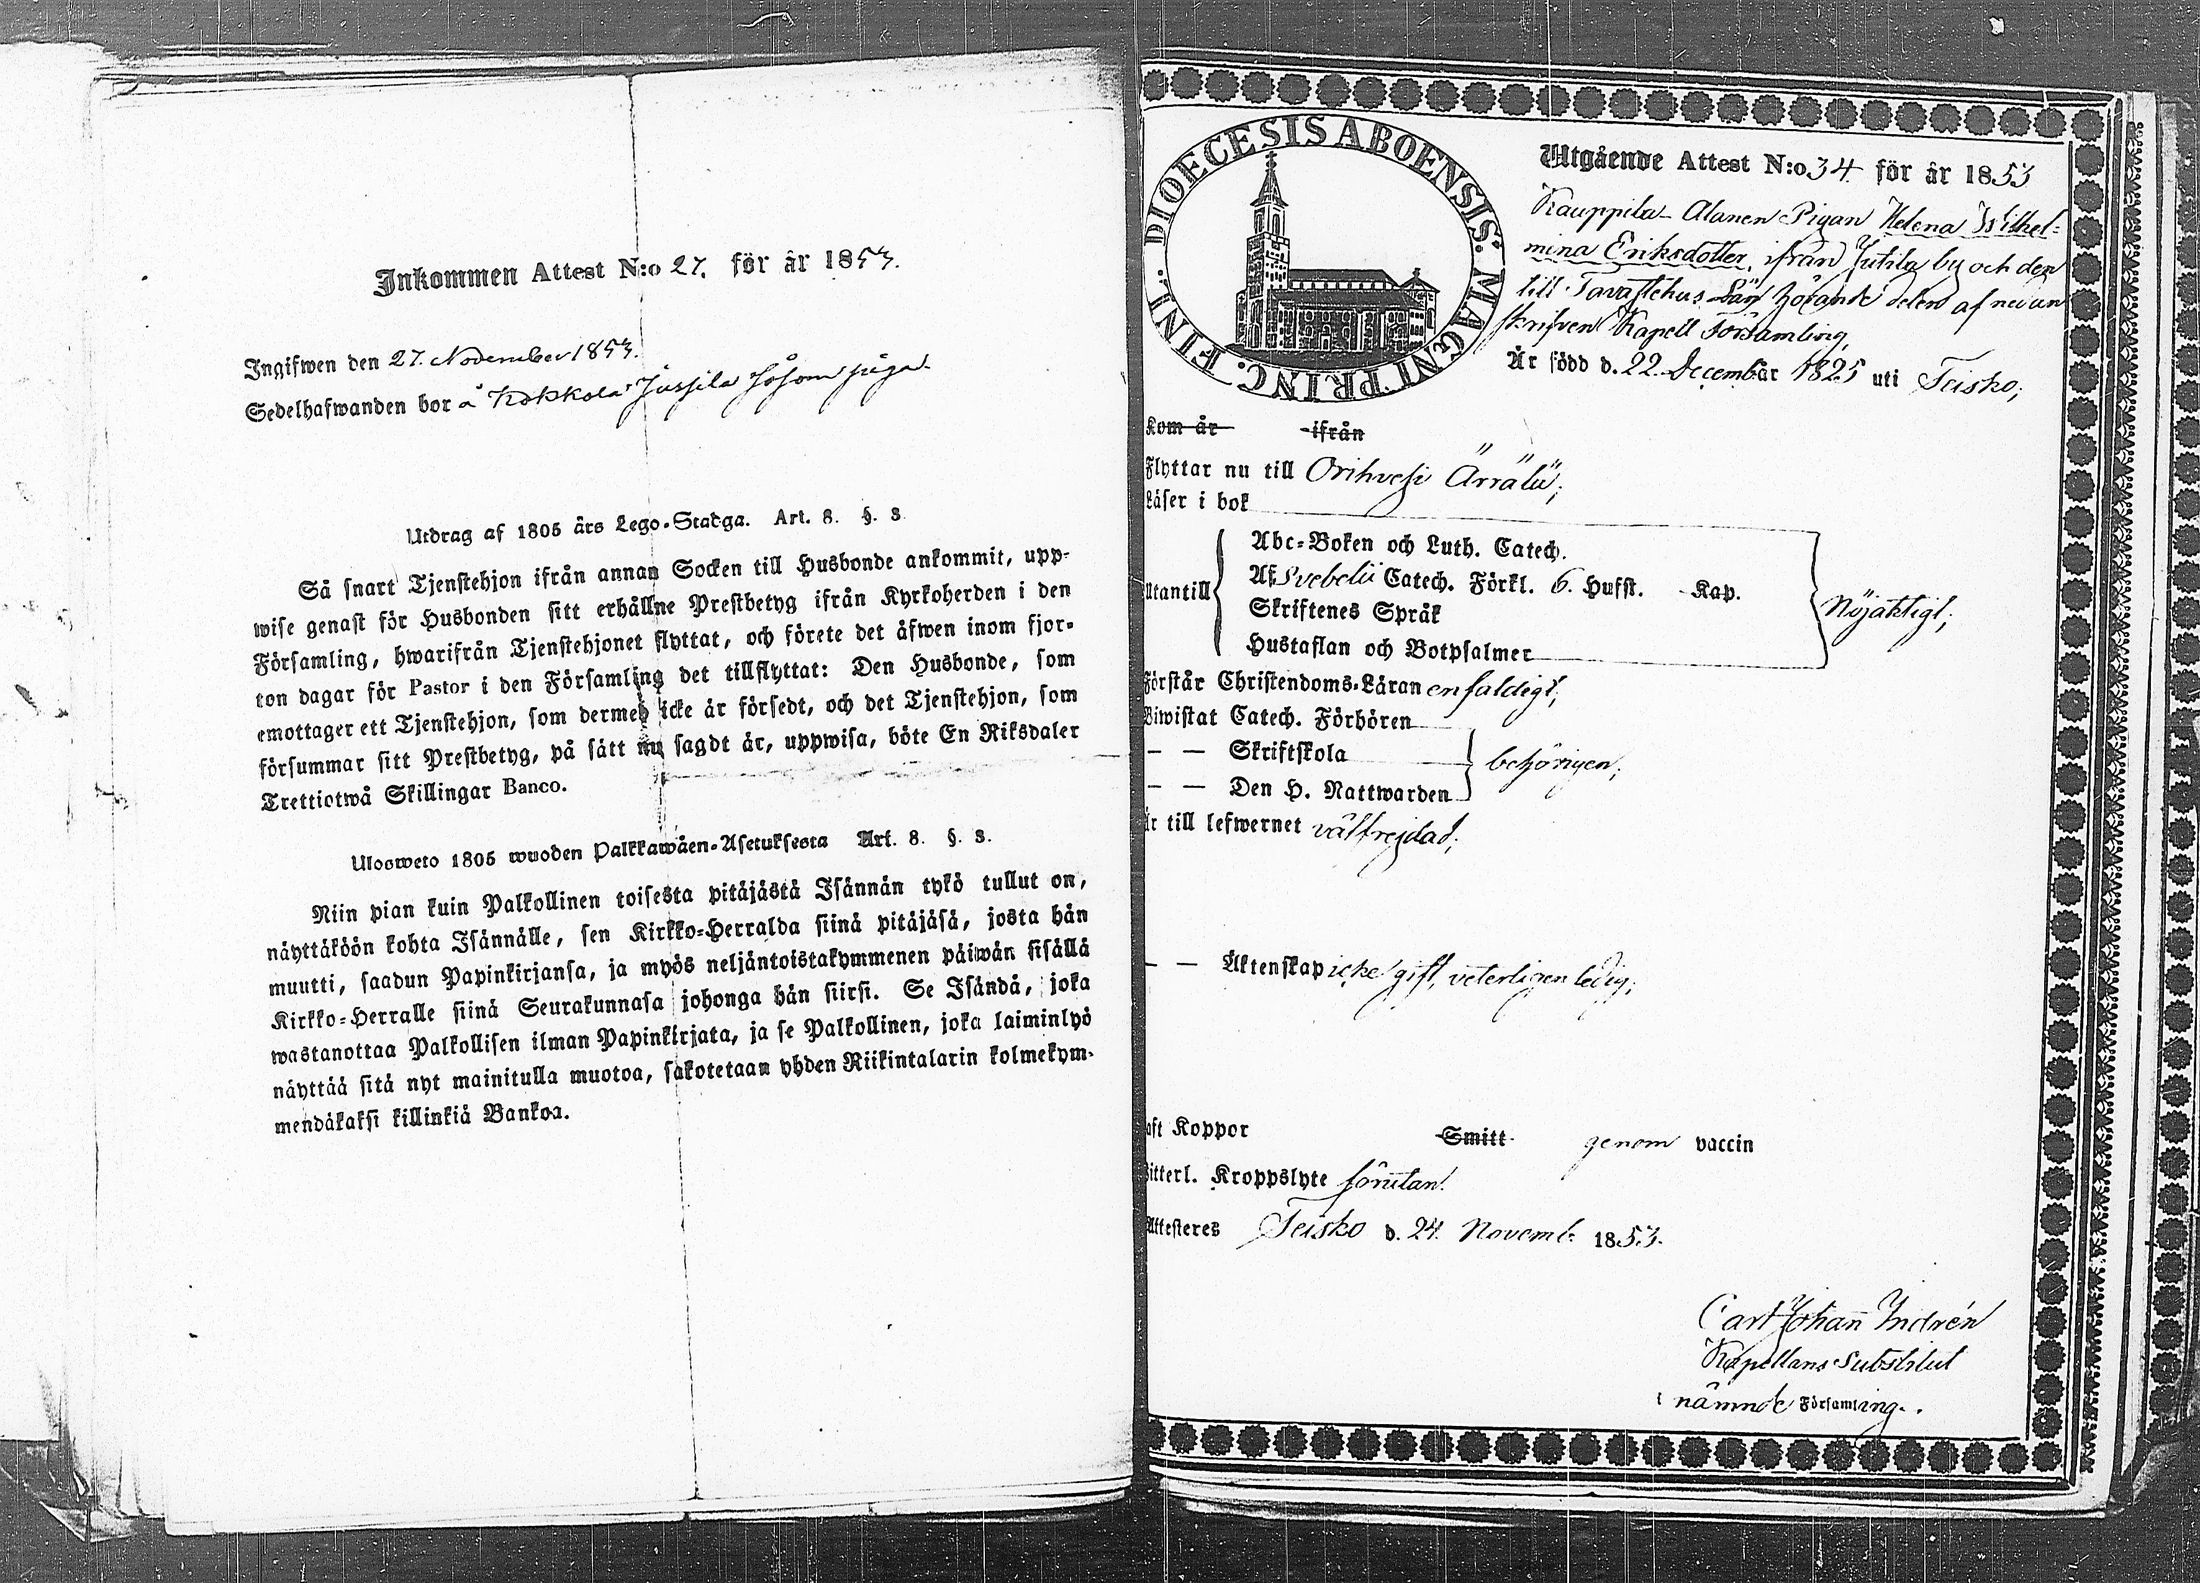 Inkommen Attest N:o 27. för år 1853.
Ingifwen den 27. November 1853.
Sedelhafwanden bor å Kokkola Jussila såsom piga.
Utdrag af 1805 års Lego-Stadga. Art. 8. §. 3.
Så snart Tjenstehjon ifrån annan Socken till Husbonde ankommit, upp-
wise genast för Husbonden sitt erhållne Prestbetyg ifrån Kyrkoherden i den
Församling, hwarifrån Tjenstehjonet flyttat, och förete det äfwen inom fjor-
ton dagar för Pastor i den Församling det tillflyttat: Den Husbonde, som
emottager ett Tjenstehjon, som dermed icke är försedt, och det Tjenstehjon, som
försummar sitt Prestbetyg, på sätt nu sagdt är, uppwisa, böte En Riksdaler
Trettiotwå Skillingar Banco.
Ulosweto 1805 wuoden Palkkawäen-Asetuksesta Art. 8. §. 3.
Niin pian kuin Palkollinen toisesta pitäjästä Isännän tykö tullut on,
näyttäköön kohta Isännälle, sen Kirkko-Herralda siinä pitäjäsä, josta hän
muutti, saadun Papinkirjansa, ja myös neljäntoistakymmenen päiwän sisällä
Kirkko-Herralle siinä Seurakunnasa johonga hän siirsi. Se Isändä, joka
wastanottaa Palkollisen ilman Papinkirjata, ja se Palkollinen, joka laiminlyö
näyttää sitä nyt mainitulla muotoa, sakotetaan yhden Riikintalarin kolmekym-
mendäkaksi killinkiä Bankoa.
DIOECESIS ABOENSIS. MAGNI PRINC. FINL.
Utgående Attest N:o 34 för år 1853
Kauppila-Alanen Pigan Helena Wilhel-
mina Eriksdotter, ifrån Jutila by och den
till Tavastehus Län hörande delen af
skrifven Kapell Församling,
Är född d. 22 December 1825 uti Teisko;
Kom år ifrån
Flyttar nu till Orihvesi Ärrälä;
Läser i bok
Abc-Boken och Luth. Catech.
Utantill Af Svebelii Catech. Förkl. 6. Hufst. - Kap. Nöjaktigt;
Skriftenes Språk
Hustaflan och Botpsalmer
Förstår Christendoms-Läran enfaldigt;
Biwistat Catech. Förhören
— — Skriftskola behörigen;
— — Den H. Nattwarden
Är till lefwernet välfrejdad;
— — Äktenskap icke gift, veterligen ledig;
Haft Koppor Smitt genom vaccin
Witterl. Kroppslyte förutan.
Attesteres Teisko d. 24. Novemb. 1853.
Carl Johan Indrén
Kapellans Substitut
i nämnde Församling.